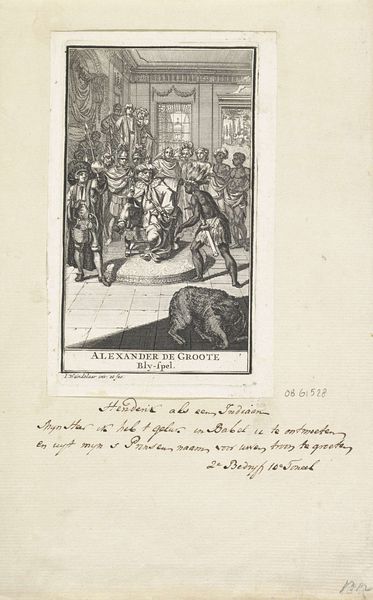 ALEXANDER DE GROOTE
Bly-spel.
I. Wandelaar inv. et fec.
OB 61528
Hendrik als een Indiaan
Mijn Heer ik heb 't geluk in Babel u te ontmoeten
en uyt mijn s Prinsen naam voor uwen troon te groeten
2e Bedrijf 10e Toneel